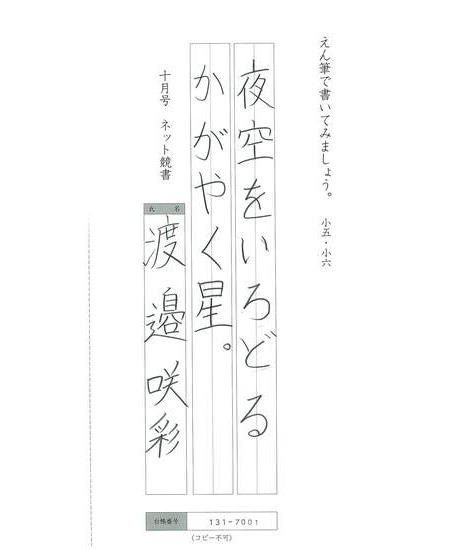 えん筆で書いてみましょう。 小五・小六
夜空をいろどる
かがやく星。
十月号 ネット競書
氏名
渡邉咲彩
台帳番号 131-7001
(コピー不可)